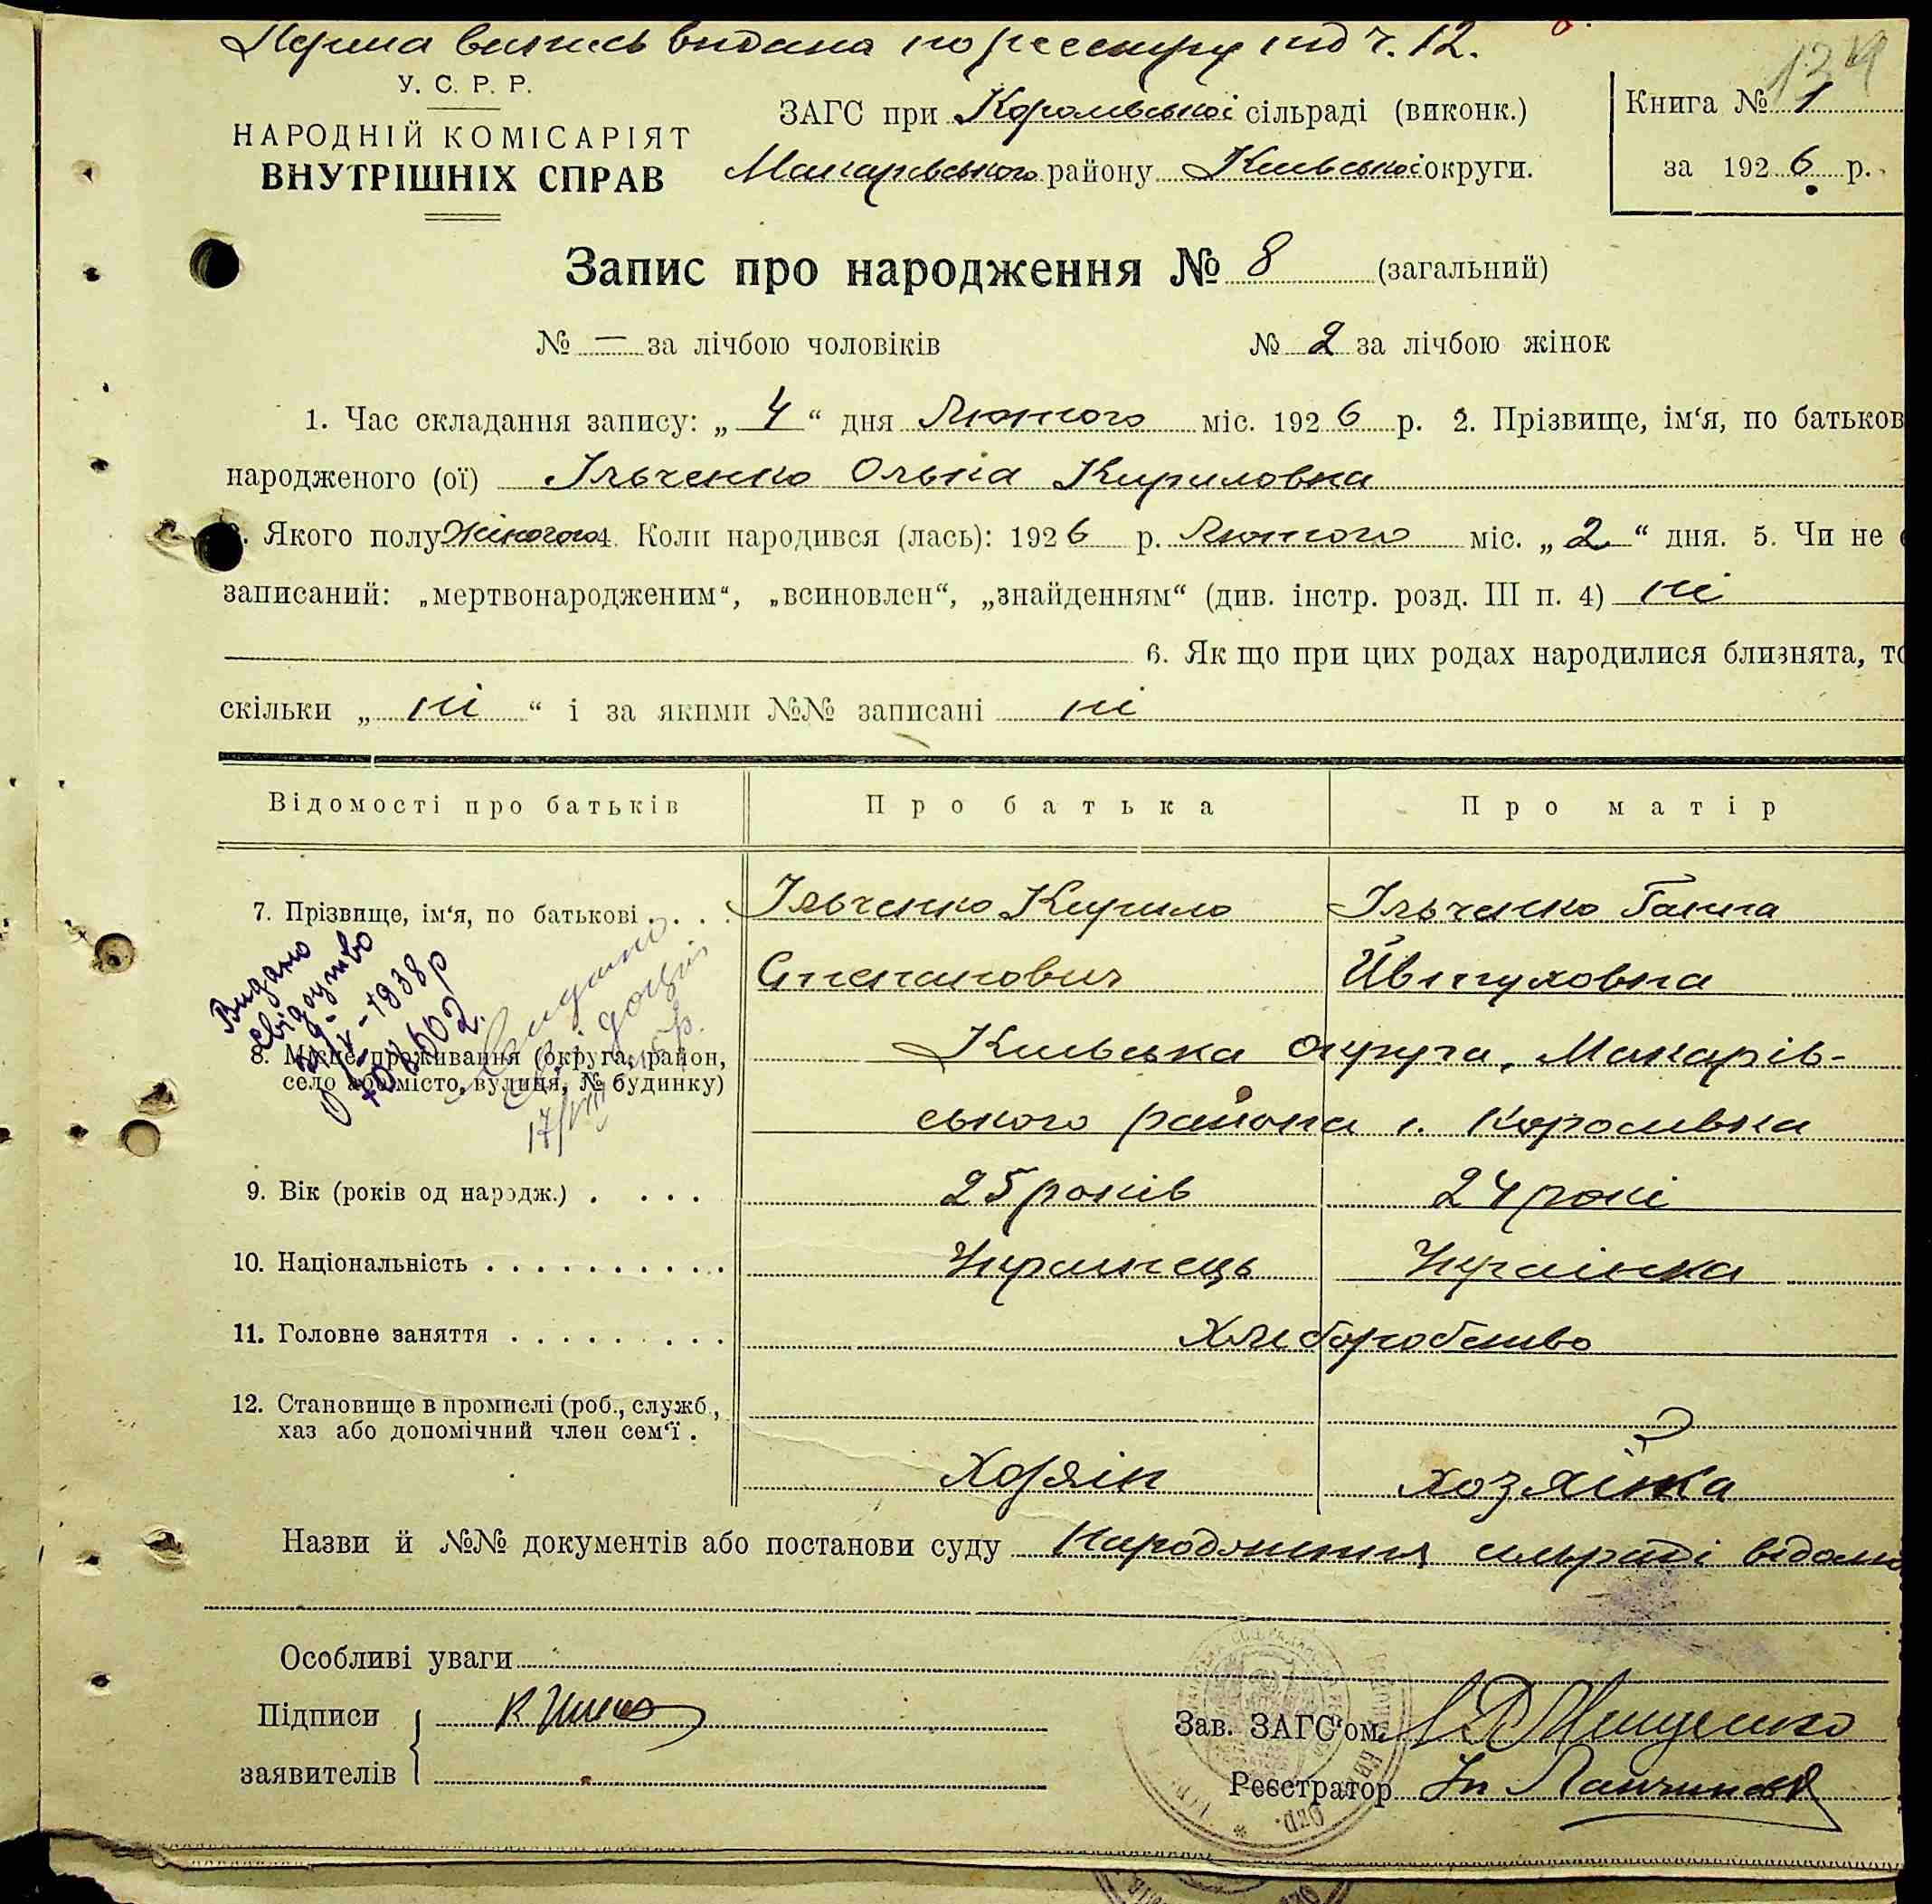 Перша випись видана по реєстру під ч. 12.
134
У. С. Р. Р.
НАРОДНІЙ КОМІСАРІЯТ
ВНУТРІШНІХ СПРАВ
ЗАГС при Королівської сільраді (виконк.)
Макарівського району Київської округи.
Книга № 1
за 1926 р.
Запис про народження № 8 (загальний)
№ — за лічбою чоловіків № 2 за лічбою жінок
1. Час складання запису: „4“ дня Лютого міс. 1926 р. 2. Прізвище, ім‘я, по батьков
народженого (ої) Ільченко Ольга Кириловна
Якого полу Жіночого 4. Коли народився (лась): 1926 р. Лютого міс. „2“ дня. 5. Чи не
записаний: „мертвонародженим“, „всиновлен“, „знайденням“ (див. інстр. розд. III п. 4) ні
6. Як що при цих родах народилися близнята, то
скільки „ні“ і за якими №№ записані ні
Відомості про батьків Про батька Про матір
7. Прізвище, ім‘я, по батькові . . . Ільченко Кирило Ільченко Ганна
Степанович Йвтуховна
Видано
свідоцтво
1938 р
8. Місце проживання (округа, район, Київська округа, Макарів-
село або місто, вулиця, № будинку)
ського района с. Королівка
9. Вік (років од народж.) . . . . 25 років 24 рокі
10. Національність . . . . . . . . . . Українець Українка
11. Головне заняття . . . . . . . . . Хліборобство
12. Становище в промислі (роб., служб.,
хаз або допомічний член сем‘ї .
Хозяін хозяїнка
Назви й №№ документів або постанови суду Народження сільраді відомо
Особливі уваги
Підписи
заявителів
Зав. ЗАГС‘ом
Реєстратор